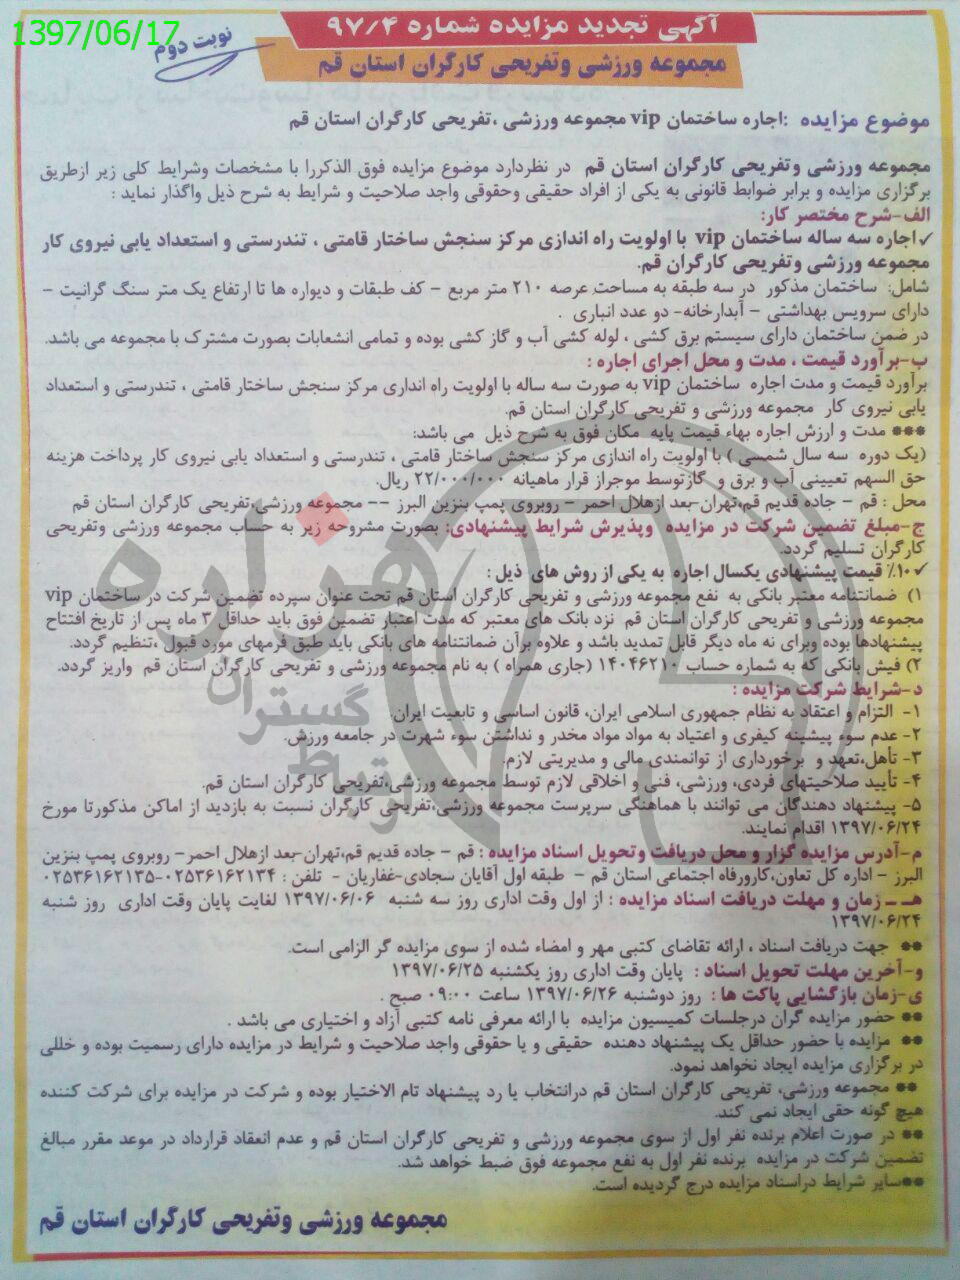 1397/06/17
آگهی تجدید مزایده شماره ۹۷/۴
نوبت دوم
مجموعه ورزشی وتفریحی کارگران استان قم
موضوع مزایده :اجاره ساختمان vip مجموعه ورزشی ،تفریحی کارگران استان قم
مجموعه ورزشی وتفریحی کارگران استان قم در نظردارد موضوع مزایده فوق الذکررا با مشخصات وشرایط کلی زیر ازطریق
برگزاری مزایده و برابر ضوابط قانونی به یکی از افراد حقیقی وحقوقی واجد صلاحیت و شرایط به شرح ذیل واگذار نماید :
الف-شرح مختصر کار:
✓اجاره سه ساله ساختمان vip با اولویت راه اندازی مرکز سنجش ساختار قامتی ، تندرستی و استعداد یابی نیروی کار
مجموعه ورزشی وتفریحی کارگران استان قم.
شامل: ساختمان مذکور در سه طبقه به مساحت عرصه ۲۱۰ متر مربع – کف طبقات و دیواره ها تا ارتفاع یک متر سنگ گرانیت –
دارای سرویس بهداشتی – آبدارخانه- دو عدد انباری .
در ضمن ساختمان دارای سیستم برق کشی ، لوله کشی آب و گاز کشی بوده و تمامی انشعابات بصورت مشترک با مجموعه می باشد.
ب-برآورد قیمت ، مدت و محل اجرای اجاره :
برآورد قیمت و مدت اجاره ساختمان vip به صورت سه ساله با اولویت راه انداری مرکز سنجش ساختار قامتی ، تندرستی و استعداد
یابی نیروی کار مجموعه ورزشی و تفریحی کارگران استان قم.
*** مدت و ارزش اجاره بهاء قیمت پایه مکان فوق به شرح ذیل می باشد:
(یک دوره سه سال شمسی ) با اولویت راه اندازی مرکز سنجش ساختار قامتی ، تندرستی و استعداد یابی نیروی کار پرداخت هزینه
حق السهم تعیینی آب و برق و گازتوسط موجراز قرار ماهیانه ۲۲/۰۰۰/۰۰۰ ریال.
محل : قم – جاده قدیم قم،تهران-بعد ازهلال احمر – روبروی پمپ بنزین البرز –- مجموعه ورزشی،تفریحی کارگران استان قم
ج-مبلغ تضمین شرکت در مزایده وپذیرش شرایط پیشنهادی: بصورت مشروحه زیر به حساب مجموعه ورزشی وتفریحی
کارگران تسلیم گردد.
✓۱۰٪ قیمت پیشنهادی یکسال اجاره به یکی از روش های ذیل :
۱) ضمانتنامه معتبر بانکی به نفع مجموعه ورزشی و تفریحی کارگران استان قم تحت عنوان سپرده تضمین شرکت در ساختمان vip
مجموعه ورزشی و تفریحی کارگران استان قم نزد بانک های معتبر که مدت اعتبار تضمین فوق باید حداقل ۳ ماه پس از تاریخ افتتاح
پیشنهادها بوده وبرای نه ماه دیگر قابل تمدید باشد و علاوه برآن ضمانتنامه های بانکی باید طبق فرمهای مورد قبول ،تنظیم گردد.
۲) فیش بانکی که به شماره حساب ۱۴۰۴۶۲۱۰ (جاری همراه ) به نام مجموعه ورزشی و تفریحی کارگران استان قم واریز گردد.
د-شرایط شرکت مزایده :
۱- التزام و اعتقاد به نظام جمهوری اسلامی ایران، قانون اساسی و تابعیت ایران.
۲- عدم سوء پیشینه کیفری و اعتیاد به مواد مواد مخدر و نداشتن سوء شهرت در جامعه ورزش.
۳- تأهل،تعهد و برخورداری از توانمندی مالی و مدیریتی لازم.
۴- تأیید صلاحیتهای فردی، ورزشی، فنی و اخلاقی لازم توسط مجموعه ورزشی،تفریحی کارگران استان قم.
۵- پیشنهاد دهندگان می توانند با هماهنگی سرپرست مجموعه ورزشی،تفریحی کارگران نسبت به بازدید از اماکن مذکورتا مورخ
۱۳۹۷/۰۶/۲۴ اقدام نمایند.
م-آدرس مزایده گزار و محل دریافت وتحویل اسناد مزایده : قم – جاده قدیم قم،تهران-بعد ازهلال احمر- روبروی پمپ بنزین
البرز – اداره کل تعاون،کارورفاه اجتماعی استان قم – طبقه اول آقایان سجادی-غفاریان – تلفن : ۰۲۵۳۶۱۶۲۱۳۴-۰۲۵۳۶۱۶۲۱۳۵
هـ – زمان و مهلت دریافت اسناد مزایده : از اول وقت اداری روز سه شنبه ۱۳۹۷/۰۶/۰۶ لغایت پایان وقت اداری روز شنبه
۱۳۹۷/۰۶/۲۴
** جهت دریافت اسناد ، ارائه تقاضای کتبی مهر و امضاء شده از سوی مزایده گر الزامی است.
و-آخرین مهلت تحویل اسناد : پایان وقت اداری روز یکشنبه ۱۳۹۷/۰۶/۲۵
ی-زمان بازگشایی پاکت ها : روز دوشنبه ۱۳۹۷/۰۶/۲۶ ساعت ۰۹:۰۰ صبح .
** حضور مزایده گران درجلسات کمیسیون مزایده با ارائه معرفی نامه کتبی آزاد و اختیاری می باشد .
** مزایده با حضور حداقل یک پیشنهاد دهنده حقیقی و یا حقوقی واجد صلاحیت و شرایط در مزایده دارای رسمیت بوده و خللی
در برگزاری مزایده ایجاد نخواهد نمود.
** مجموعه ورزشی، تفریحی کارگران استان قم درانتخاب یا رد پیشنهاد تام الاختیار بوده و شرکت در مزایده برای شرکت کننده
هیچ گونه حقی ایجاد نمی کند.
** در صورت اعلام برنده نفر اول از سوی مجموعه ورزشی و تفریحی کارگران استان قم و عدم انعقاد قرارداد در موعد مقرر مبالغ
تضمین شرکت در مزایده برنده نفر اول به نفع مجموعه فوق ضبط خواهد شد.
**سایر شرایط دراسناد مزایده درج گردیده است.
مجموعه ورزشی وتفریحی کارگران استان قم
هزاره
گستران
ارتباط